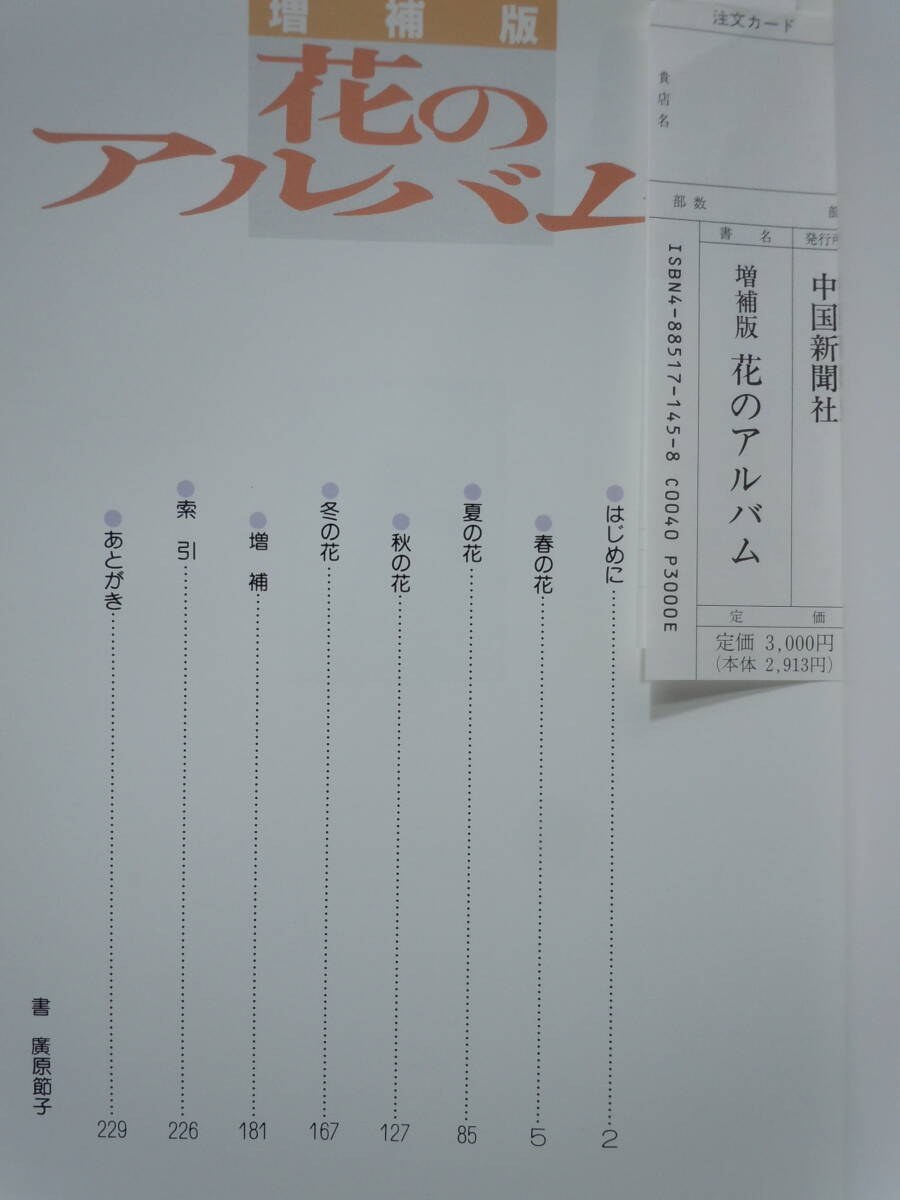 増補版
花の
アルバム
はじめに 2
春の花 5
夏の花 85
秋の花 127
冬の花 167
増補 181
索引 226
あとがき 229
書 廣原節子
注文カード
貴店名
部数
書名
発行所
中国新聞社
増補版 花のアルバム
ISBN4-88517-145-8 C0040 P3000E
定価
定価 3,000円
(本体 2,913円)